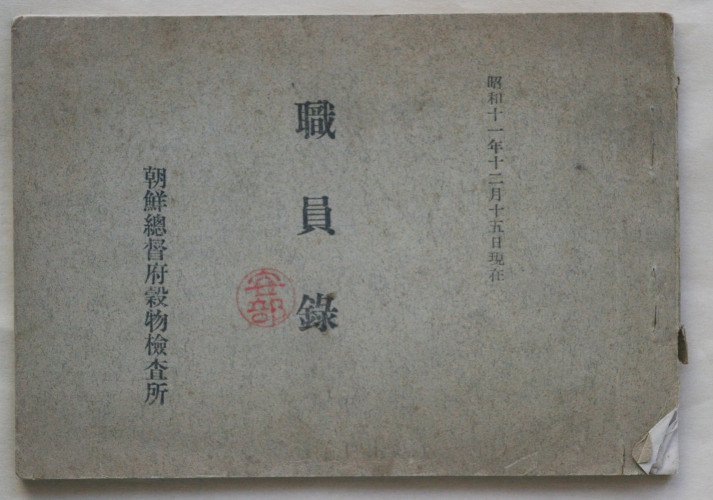 昭和十一年十二月十五日現在
職員錄
安部
朝鮮總督府穀物檢査所